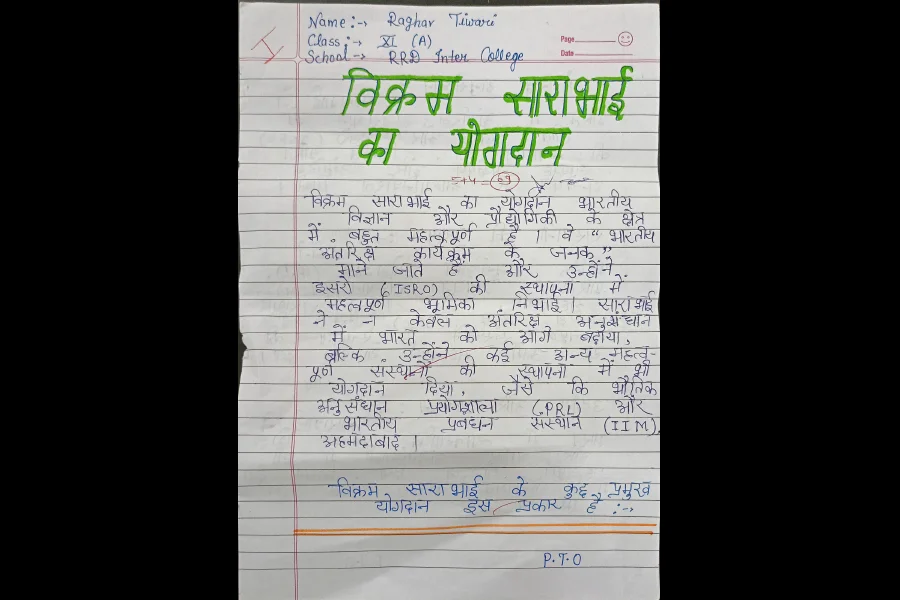 Name:-> Raghav Tiwari
Class:-> XI (A)
School-> RRD Inter College
Page
Date
विक्रम साराभाई
का योगदान
5+4=09
विक्रम साराभाई का योगदान भारतीय
विज्ञान और प्रौद्योगिकी के क्षेत्र
में बहुत महत्वपूर्ण है। वे "भारतीय
अंतरिक्ष कार्यक्रम के जनक"
माने जाते हैं और उन्होंने
इसरो (ISRO) की स्थापना में
महत्वपूर्ण भूमिका निभाई। साराभाई
ने न केवल अंतरिक्ष अनुसंधान
में भारत को आगे बढ़ाया,
बल्कि उन्होंने कई अन्य महत्व-
पूर्ण संस्थानों की स्थापना में भी
योगदान दिया, जैसे कि भौतिक
अनुसंधान प्रयोगशाला (PRL) और
भारतीय प्रबंधन संस्थान (IIM),
अहमदाबाद।
विक्रम साराभाई के कुछ प्रमुख
योगदान इस प्रकार है:->
P.T.O